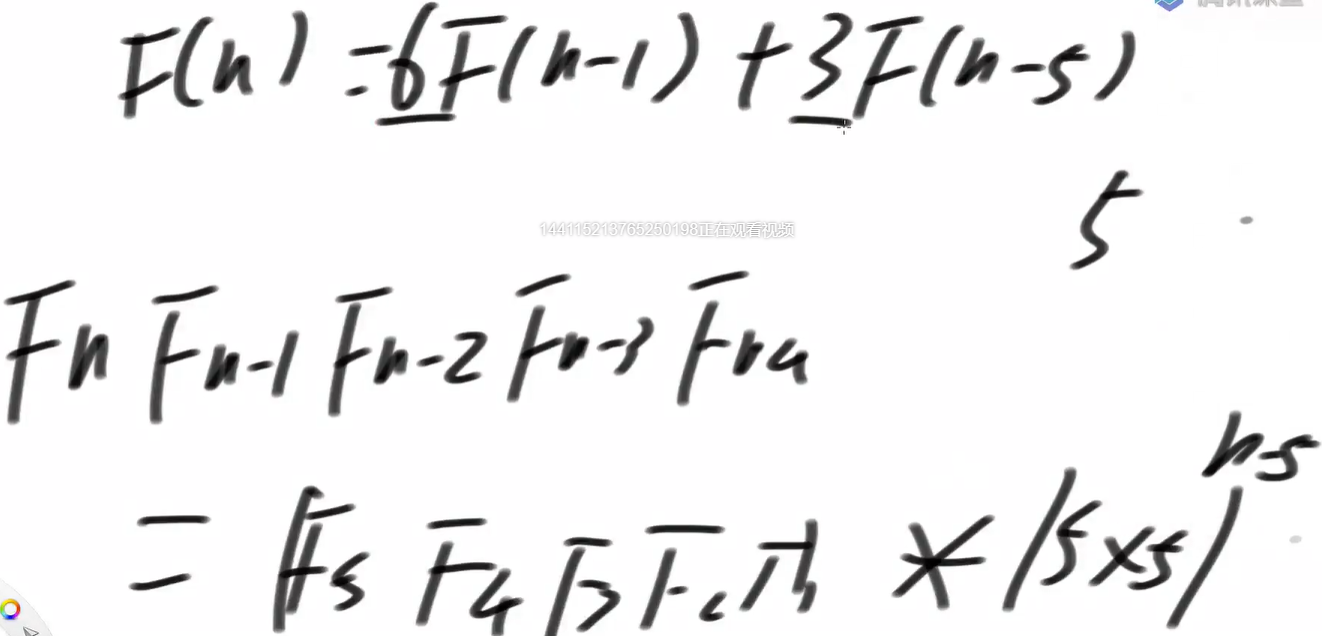 腾讯课堂
F(n) = 6F(n-1) + 3F(n-5)
5
144115213765250198正在观看视频
Fn Fn-1 Fn-2 Fn-3 Fn4
= |F5 F4 F3 F2 F1| * |5x5|^n-5